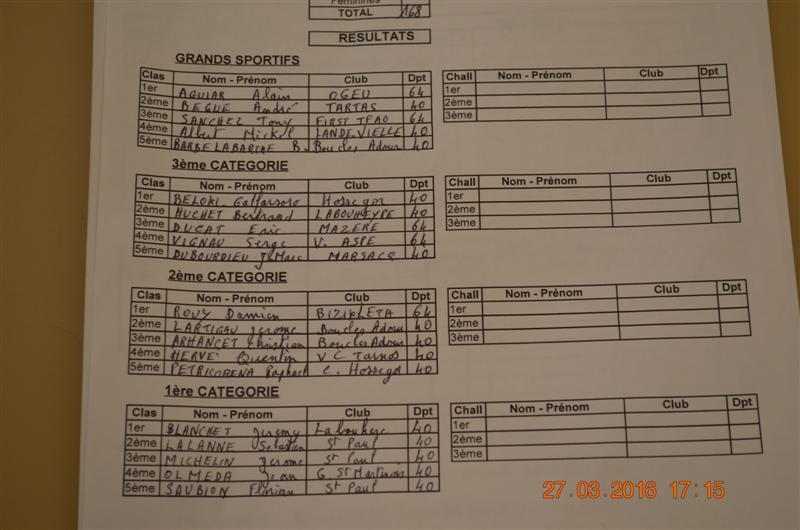 Féminines
TOTAL 168
RESULTATS
GRANDS SPORTIFS
Clas Nom - Prénom Club Dpt Chall Nom - Prénom Club Dpt
1er AGUIAR Alain OGEU 64 1er
2ème BEGUE André TARTAS 40 2ème
3ème SANCHEZ Tony FIRST TEAO 64 3ème
4ème Albert Mickel LANDE VIELLE 40
5ème BARBE LABARTHE B. Boucles Adour 40
3ème CATEGORIE
Clas Nom - Prénom Club Dpt Chall Nom - Prénom Club Dpt
1er BELOKI Hossegor 40 1er
2ème HUCHET Bertrand LABOUHEYPE 40 2ème
3ème DUCAT Eric MAZERE 64 3ème
4ème VIGNAU Serge V. ASPE 64
5ème DUBOURDIEU J Marc MARSACQ 40
2ème CATEGORIE
Clas Nom - Prénom Club Dpt Chall Nom - Prénom Club Dpt
1er ROUY Damien BIZIKLETA 64 1er
2ème LARTIGAU Jerome Boucles Adour 40 2ème
3ème ARHANCET Christian Boucles Adour 40 3ème
4ème HERVE Quentin V C Tarnos 40
5ème PETRICORENA Raphael C. Hossegor 40
1ère CATEGORIE
Clas Nom - Prénom Club Dpt Chall Nom - Prénom Club Dpt
1er BLANCHET Jeremy Labouhere 40 1er
2ème LALANNE Sebastien St Paul 40 2ème
3ème MICHELIN Jerome St Paul 40 3ème
4ème OLMEDA Jean G St Martinois 40
5ème SAUBION Florian St Paul 40
27.03.2016 17:15